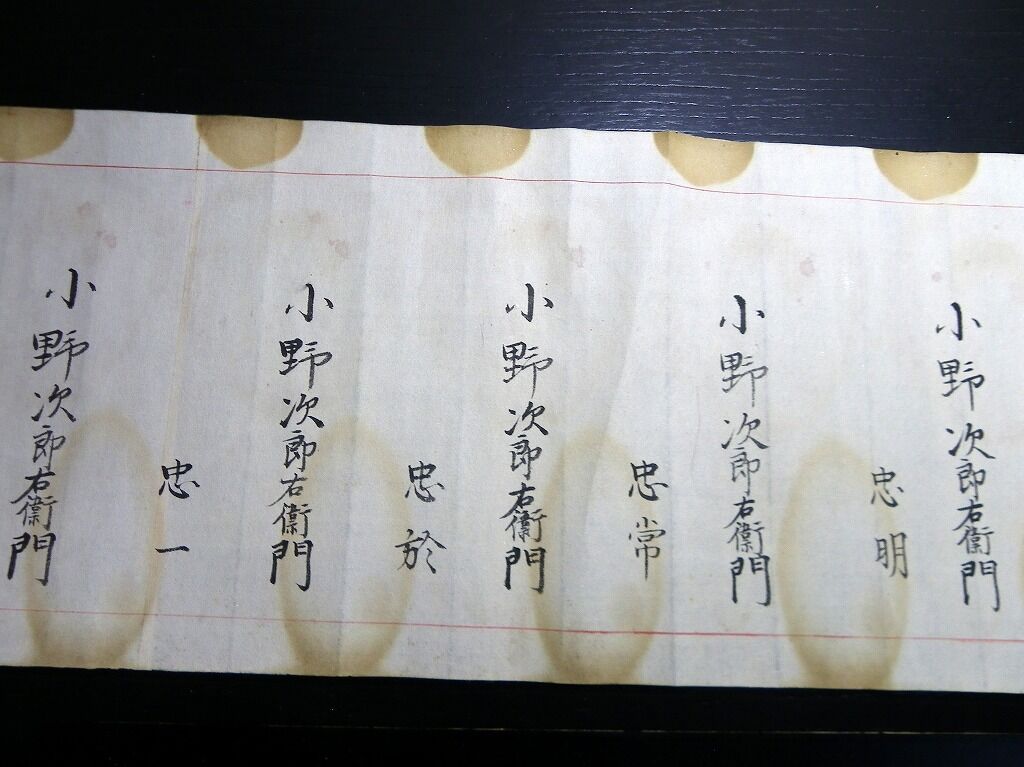 小野次郎右衛門
忠明
小野次郎右衛門
忠常
小野次郎右衛門
忠於
小野次郎右衛門
忠一
小野次郎右衛門